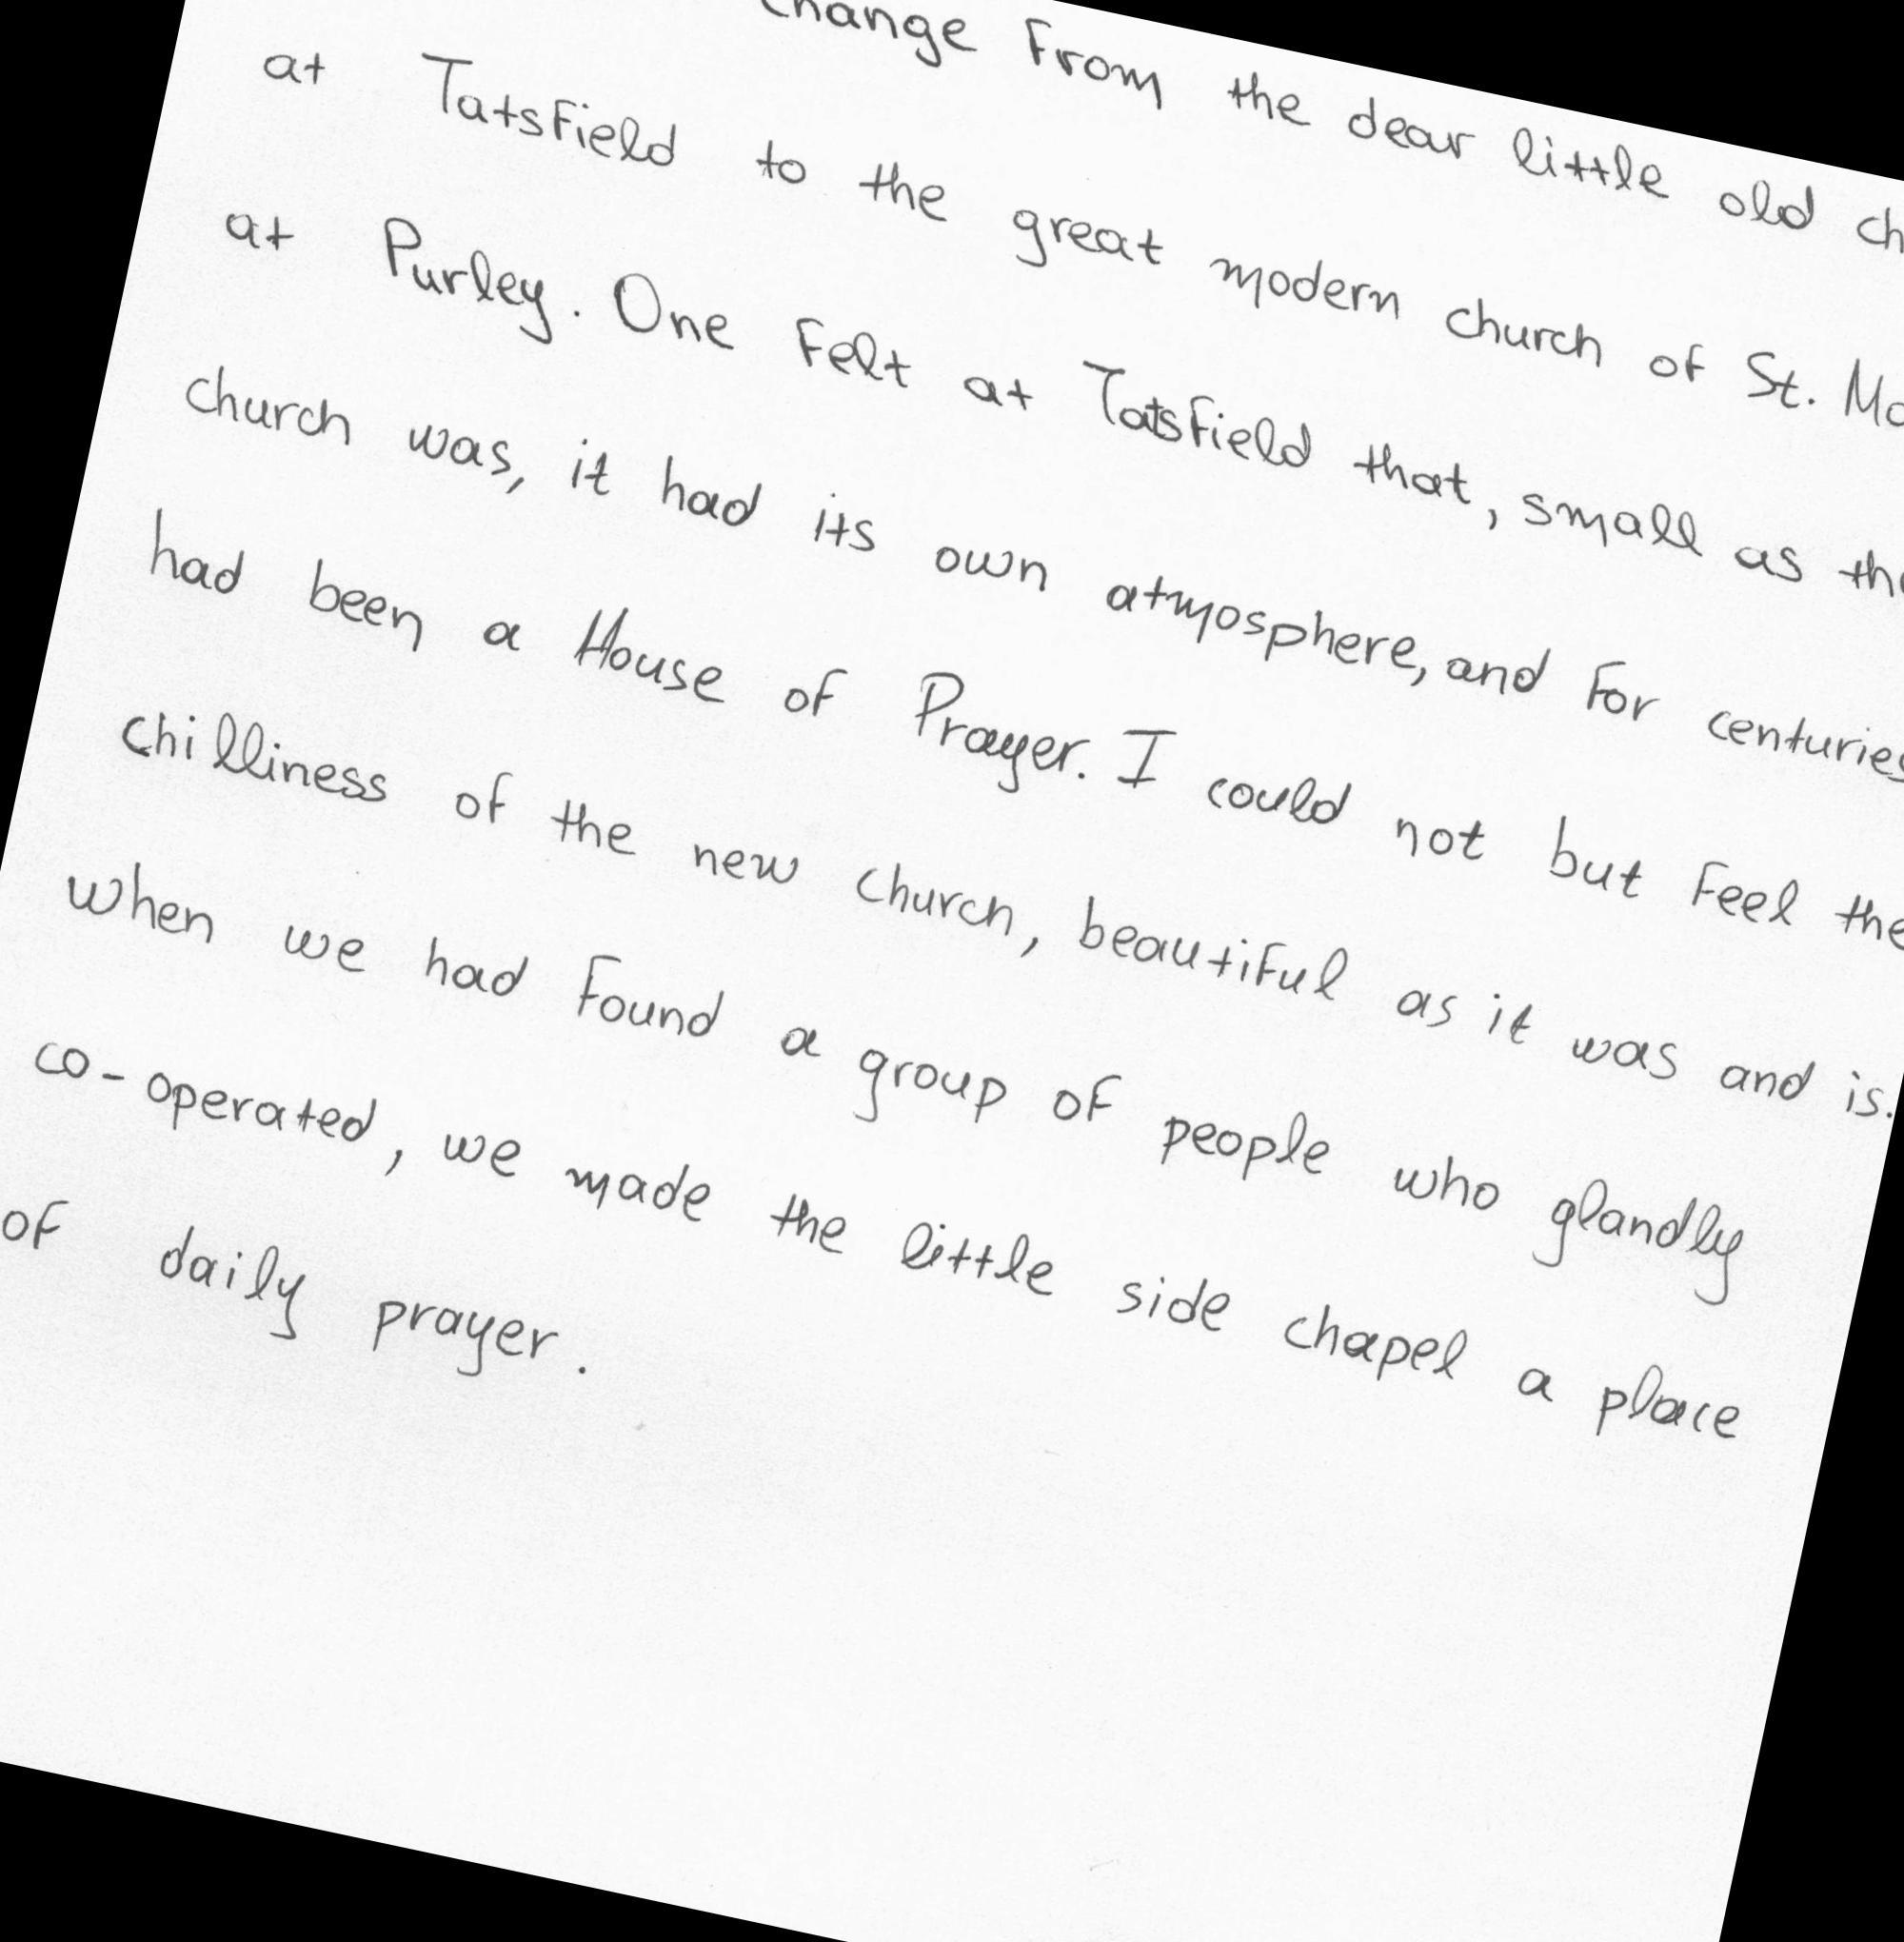 change from the dear little old
at Tatsfield to the great modern church of St.
at Purley. One felt at Tatsfield that, small as the
church was, it had its own atmosphere, and for centuries
had been a House of Prayer. I could not but feel the
chilliness of the new church, beautiful as it was and is.
when we had found a group of people who glandly
co-operated, we made the little side chapel a place
of daily prayer.